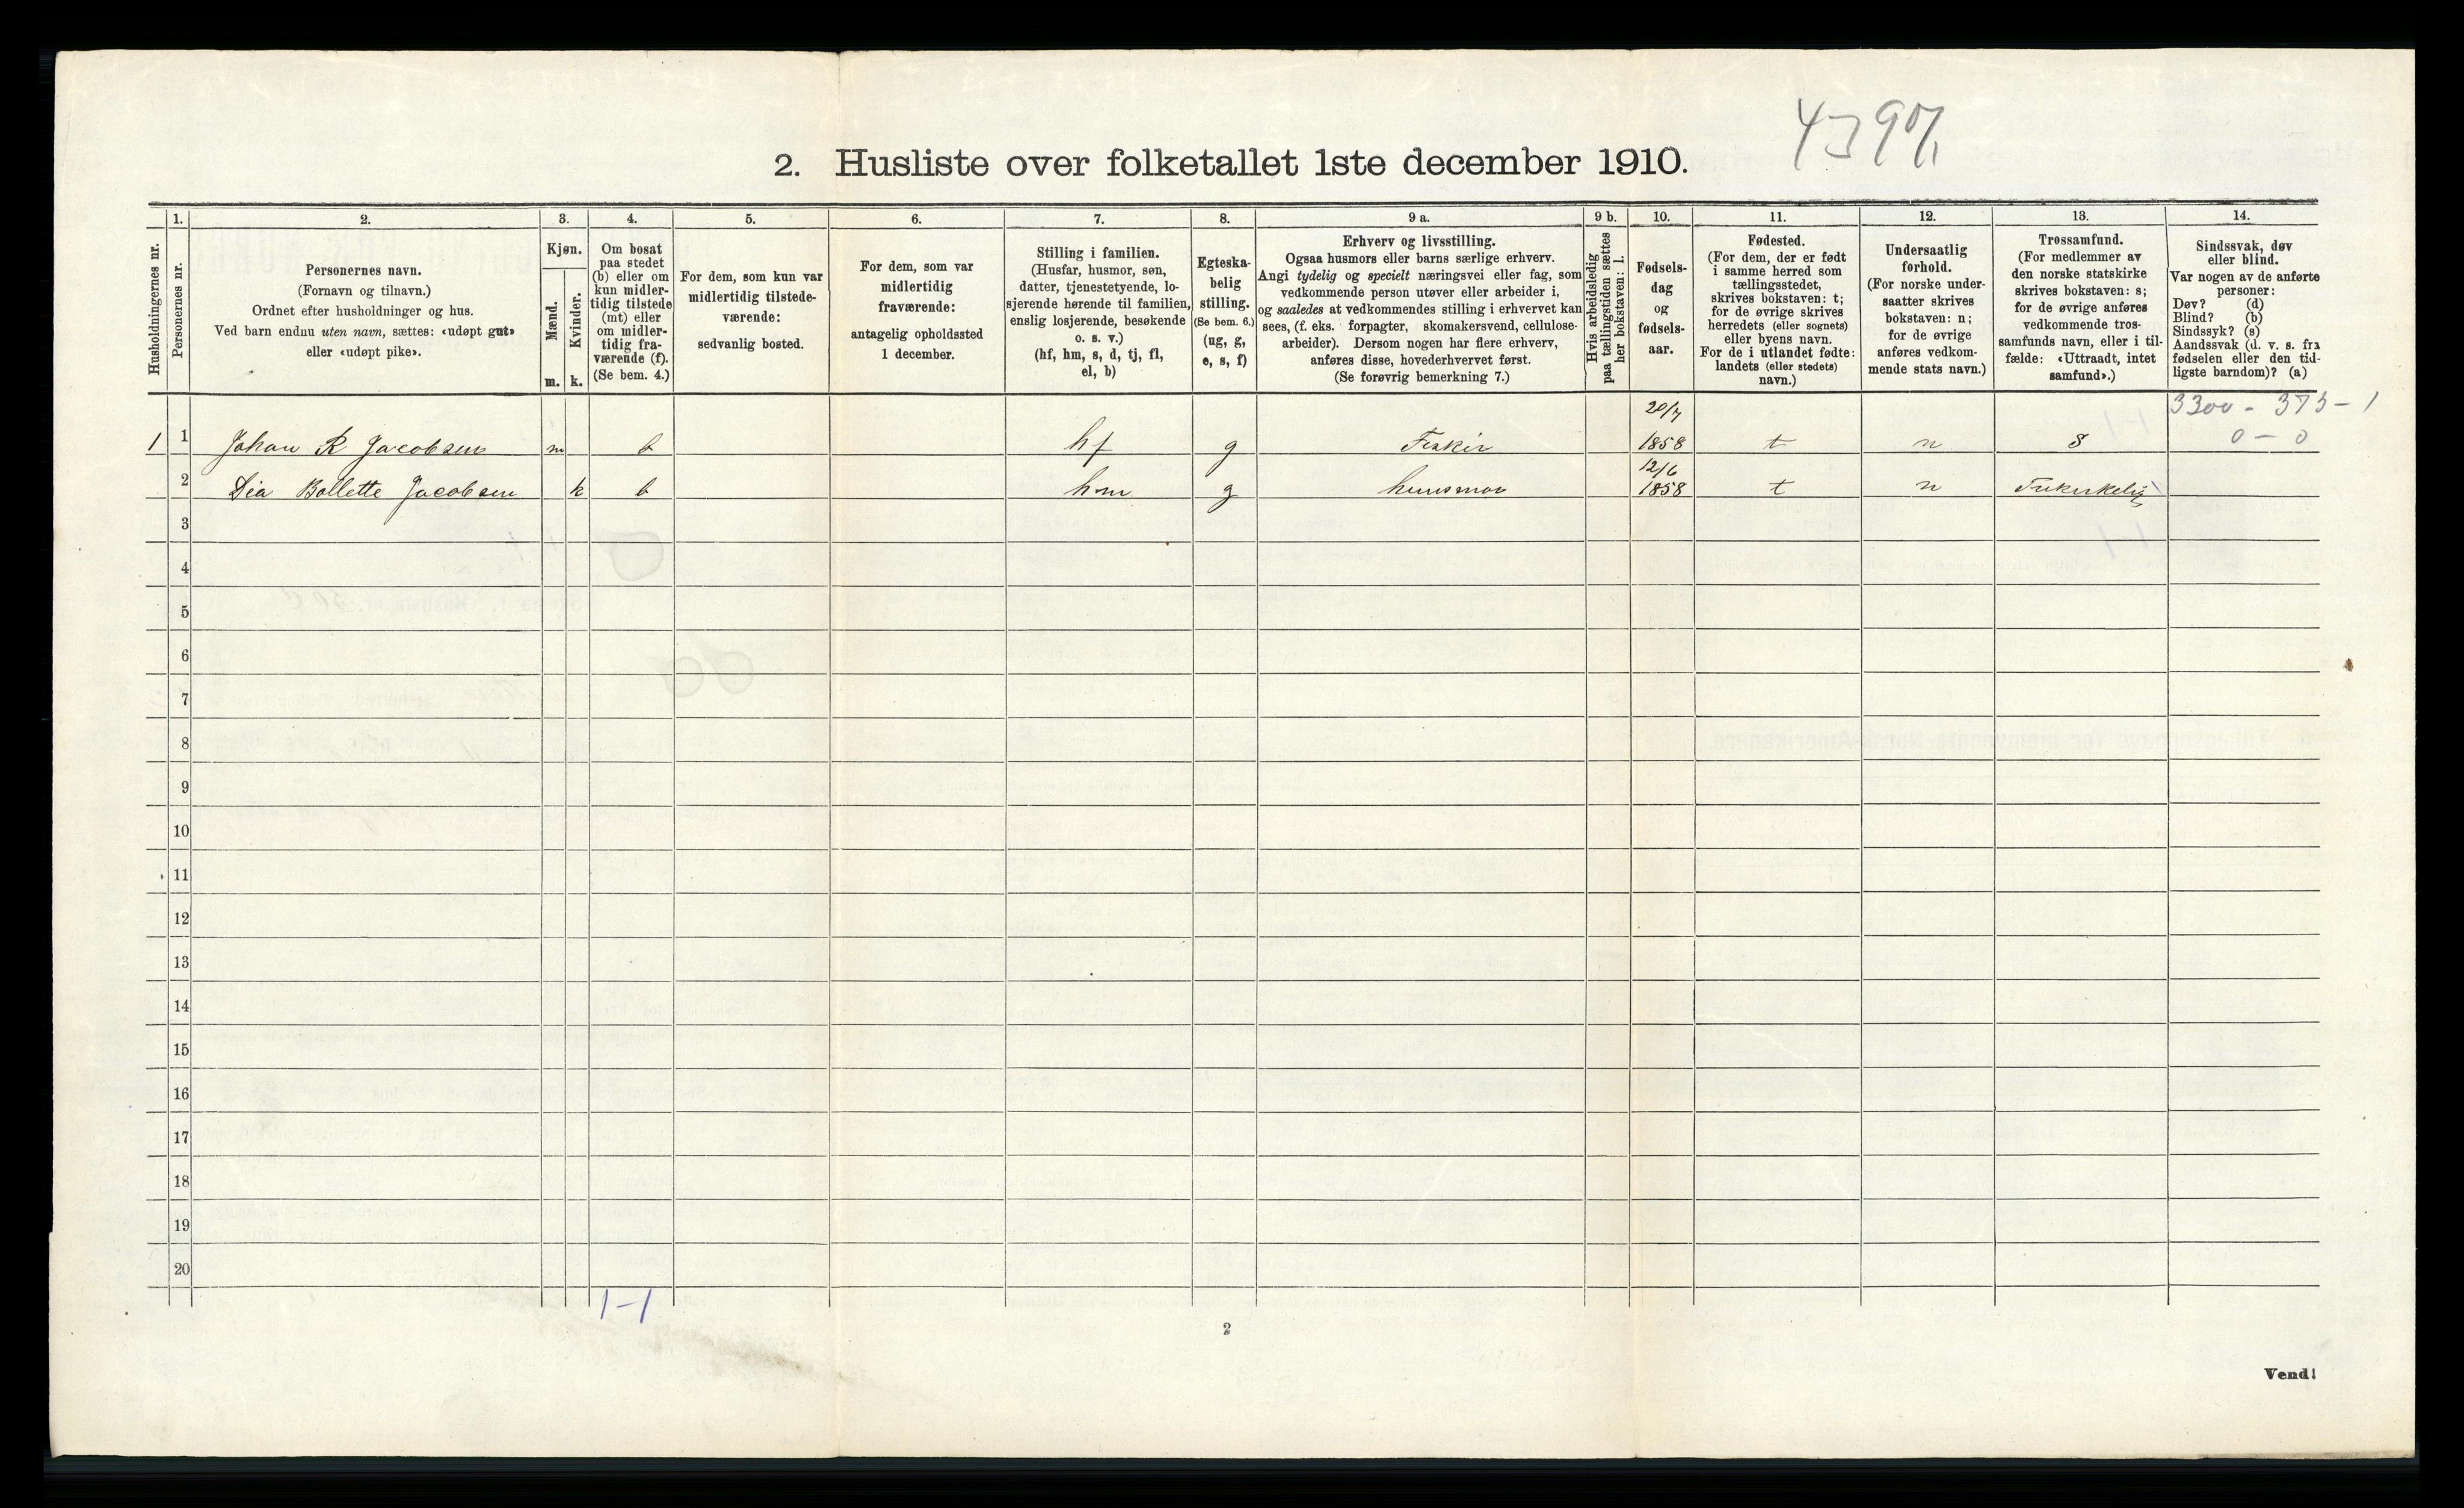 2. Husliste over folketallet 1ste december 1910.
Husholdningernes nr.
1.
Personernes nr.
2.
Personernes navn.
(Fornavn og tilnavn.)
Ordnet efter husholdninger og hus.
Ved barn endnu uten navn, sættes: «udøpt gut»
eller «udøpt pike».
3.
Kjøn.
Mænd.
m.
Kvinder.
k.
4.
Om bosat
paa stedet
(b) eller om
kun midler-
tidig tilstede
(mt) eller
om midler-
tidig fra-
værende (f).
(Se bem. 4.)
5.
For dem, som kun var
midlertidig tilstede-
værende:
sedvanlig bosted.
6.
For dem, som var
midlertidig
fraværende:
antagelig opholdssted
1 december.
7.
Stilling i familien.
(Husfar, husmor, søn,
datter, tjenestetyende, lo-
sjerende hørende til familien,
enslig losjerende, besøkende
o. s. v.)
(hf, hm, s, d, tj, fl,
el, b)
8.
Egteska-
belig
stilling.
(Se bem. 6.)
(ug, g,
e, s, f)
9 a.
Erhverv og livsstilling.
Ogsaa husmors eller barns særlige erhverv.
Angi tydelig og specielt næringsvei eller fag, som
vedkommende person utøver eller arbeider i,
og saaledes at vedkommendes stilling i erhvervet kan
sees, (f. eks. forpagter, skomakersvend, cellulose-
arbeider). Dersom nogen har flere erhverv,
anføres disse, hovederhvervet først.
(Se forøvrig bemerkning 7.)
9 b.
Hvis arbeidsledig
paa tællingstiden sættes
her bokstaven: l.
10.
Fødsels-
dag
og
fødsels-
aar.
11.
Fødested.
(For dem, der er født
i samme herred som
tællingsstedet,
skrives bokstaven: t;
for de øvrige skrives
herredets (eller sognets)
eller byens navn.
For de i utlandet fødte:
landets (eller stedets)
navn.)
12.
Undersaatlig
forhold.
(For norske under-
saatter skrives
bokstaven: n;
for de øvrige
anføres vedkom-
mende stats navn.)
13.
Trossamfund.
(For medlemmer av
den norske statskirke
skrives bokstaven: s;
for de øvrige anføres
vedkommende tros-
samfunds navn, eller i til-
fælde: «Uttraadt, intet
samfund».)
14.
Sindssvak, døv
eller blind.
Var nogen av de anførte
personer:
Døv? (d)
Blind? (b)
Sindssyk? (s)
Aandssvak (d. v. s. fra
fødselen eller den tid-
ligste barndom)? (a)
3300 - 373 - 1
0 - 0
1 1 Johan R Jacobsen m b hf g Fisker 20/7 1858 t n S
2 Dia Bollette Jacobsen k b hm g 12/6 1858 t n
3
4
5
6
7
8
9
10
11
12
13
14
15
16
17
18
19
20
1-1
2
Vend!